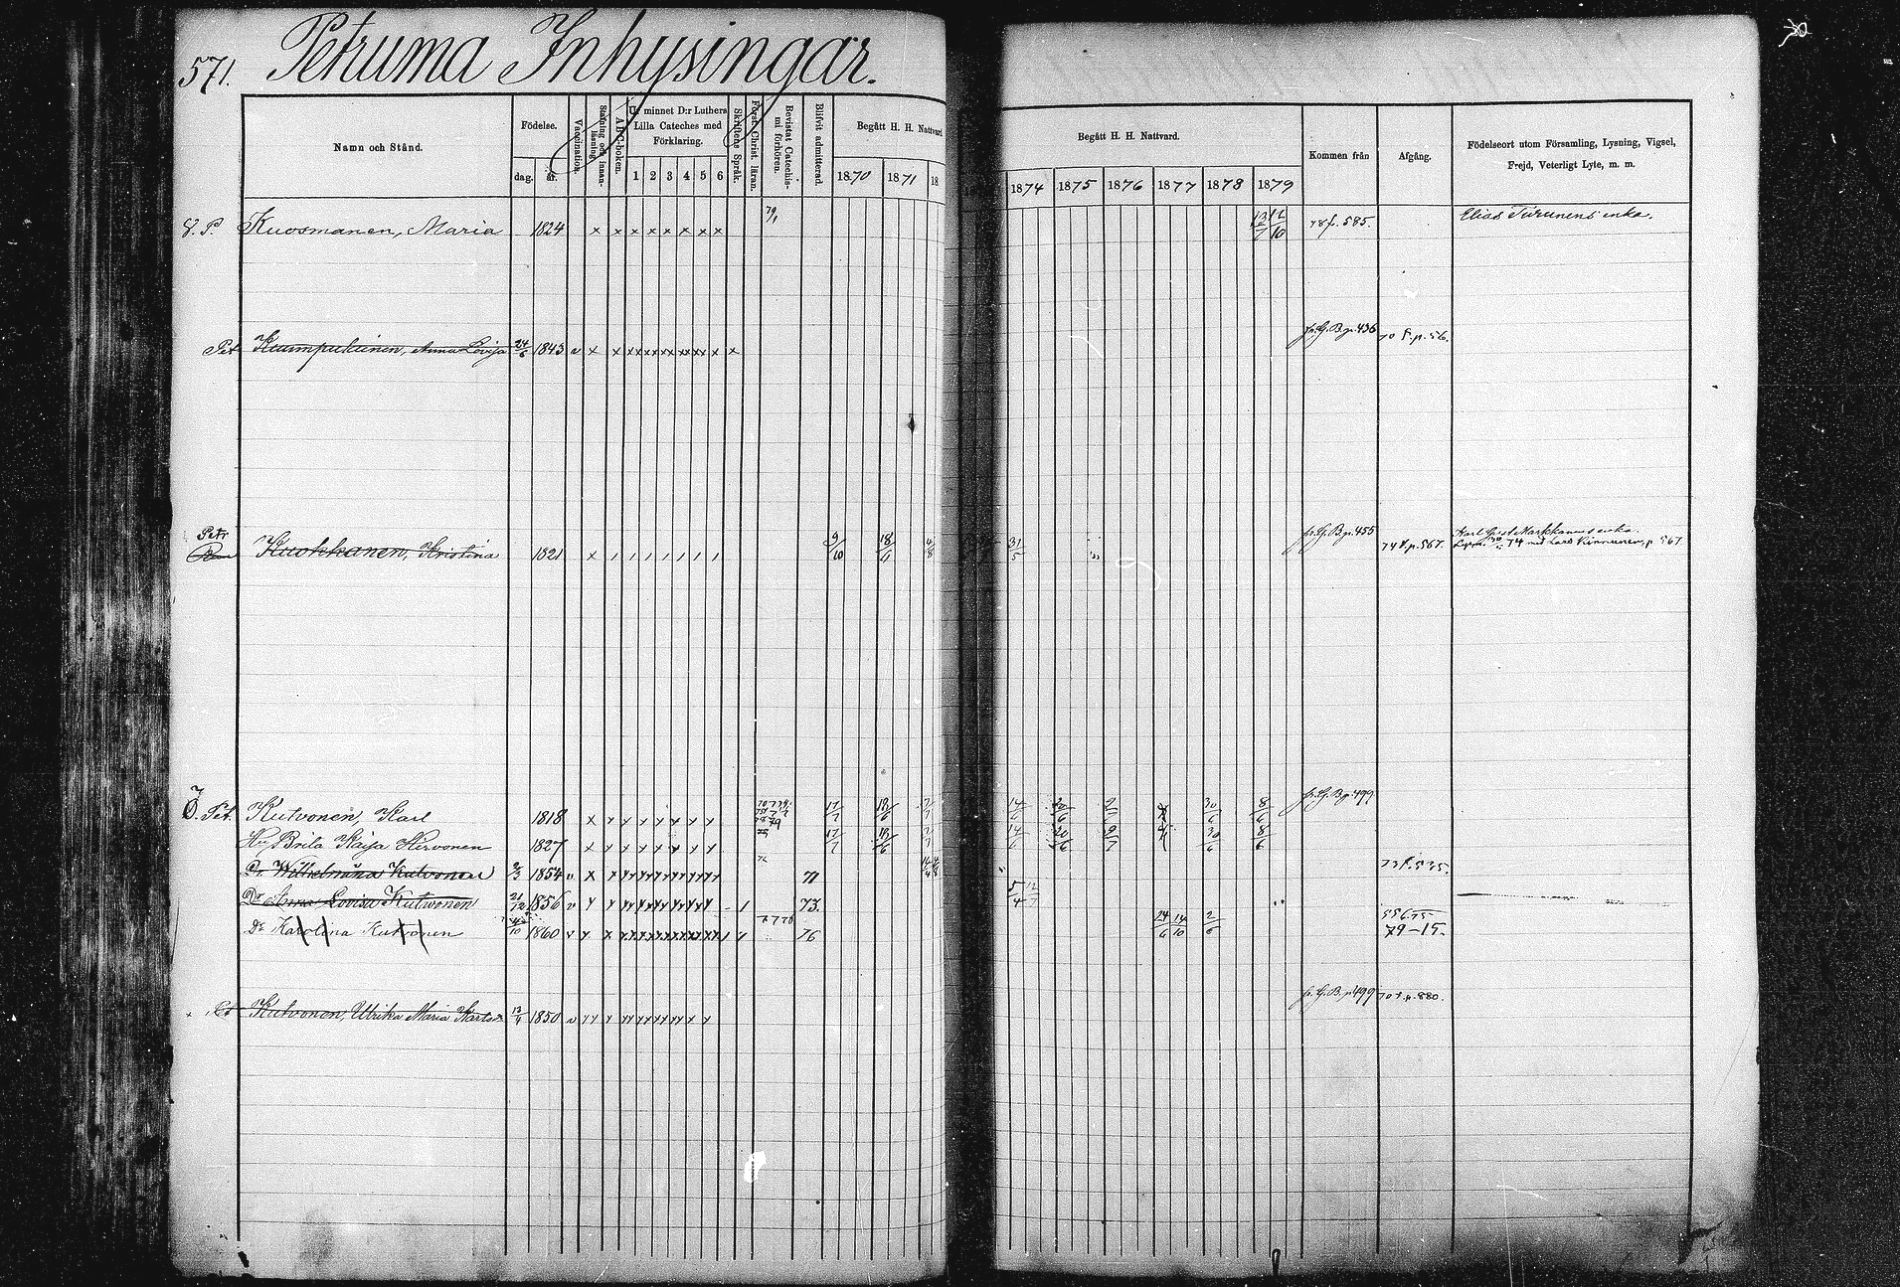 571. Petruma Inhysingar.
Namn och Stånd.
Födelse.
dag. år.
Vaccination.
Stafning och innanläsning.
A B C-boken.
Ur minnet D:r Luthers Lilla Cateches med Förklaring.
1 2 3 4 5 6
Skriftens Språk.
Först. Christ. läran.
Bevistat Catechismi förhören.
Blifvit admitterad.
Begått H. H. Nattvard
1870 1871 18
Begått H. H. Nattvard.
1874 1875 1876 1877 1878 1879
Kommen från
Afgång.
Födelseort utom Församling, Lysning, Vigsel, Frejd, Veterligt Lyte, m. m.
Kuosmanen, Maria 1824 x x x x x x x x 13/7 12/10 78 f. 585. Elias Turunens enka.
Pet Kuumpulainen, Anna Lovisa 24/6 1843 v x x fr. G. B. p. 436 70 f. p. 56.
Petr
Kuokkanen, Kristina 1821 x 9/10 18/6 4/8 31/5 fr. G. B. p. 455 74 f. p. 567. Karl Gust Markkanens enka
74 med Lars Kinnunen, p 567
Pet. Kutvonen, Karl 1818 17/7 13/6 7/7 14/6 20/6 30/6 8/6 fr. G. B. p. 499
Hu Brita Kaija Hirvonen 1827 17/7 13/6 7/7 14/6 20/6 30/6 8/6
Dr Wilhelmina Kutvonen 2/3 1854 71 73 f. 535.
Dr Anna Lovisa Kutvonen 21/12 1856 v 73. 5/4 12/7
Dr Karolina Kutvonen 4/10 1860 v 76 24/6 14/10 2/6 556.75 79-15.
Pet Kutvonen, Ulrika Maria Karlsr 13/4 1850 v fr. G. B. p 499 70 f. p. 880.